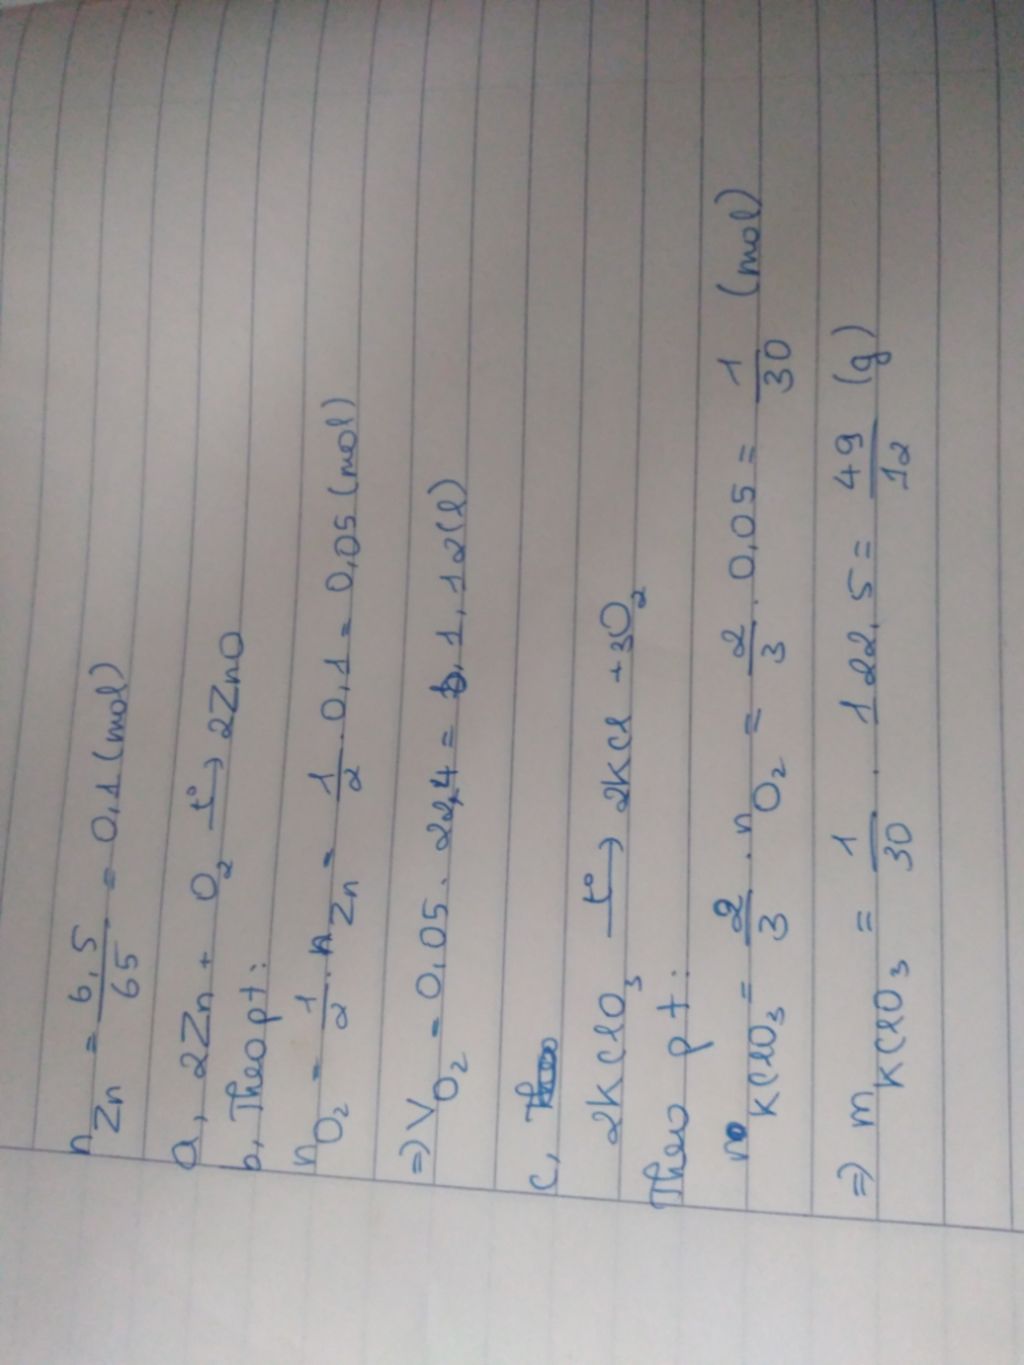 n Zn = 6,5/65 = 0,1 (mol)
a, 2Zn + O2 t°→ 2ZnO
b, Theo pt:
n O2 = 1/2 . n Zn = 1/2 . 0,1 = 0,05 (mol)
=> V O2 = 0,05 . 22,4 = 1,12 (l)
c,
2KClO3 t°→ 2KCl + 3O2
Theo pt:
n KClO3 = 2/3 . n O2 = 2/3 . 0,05 = 1/30 (mol)
=> m KClO3 = 1/30 . 122,5 = 49/12 (g)